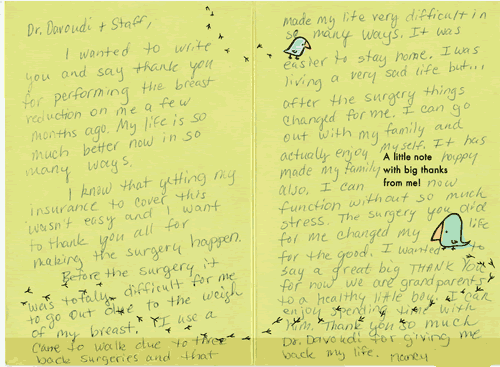 Dr. Davoudi + Staff,
I wanted to write
you and say thank you
for performing the breast
reduction on me a few
months ago. My life is so
much better now in so
many ways.
I know that getting my
insurance to cover this
wasn't easy and I want
to thank you all for
making the surgery happen.
Before the surgery it
was totally difficult for me
to go out due to the weigh
of my breast. I use a
cane to walk due to three
back surgeries and that
made my life very difficult in
so many ways. It was
easier to stay home. I was
living a very sad life but...
after the surgery things
changed for me. I can go
out with my family and
actually enjoy myself. It has
made my family happy
also. I can now
function without so much
stress. The surgery you did
for me changed my life
for the good. I wanted to
say a great big THANK YOU
for now we are grandparents
to a healthy little boy. I can
enjoy spending time with
him. Thank you so much
Dr. Davoudi for giving me
back my life.
A little note
with big thanks
from me!